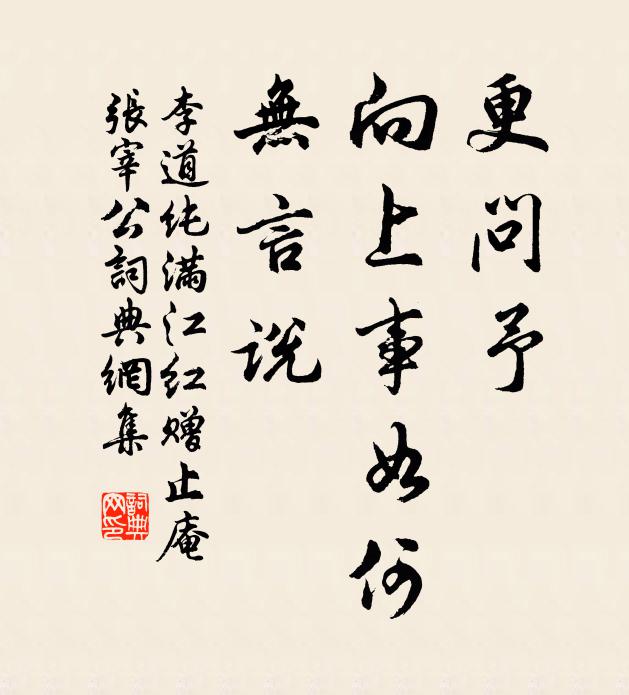 更問予
向上事如何
無言說
李道纯满江红赠止庵
張宰公詞典網集
詞典网印